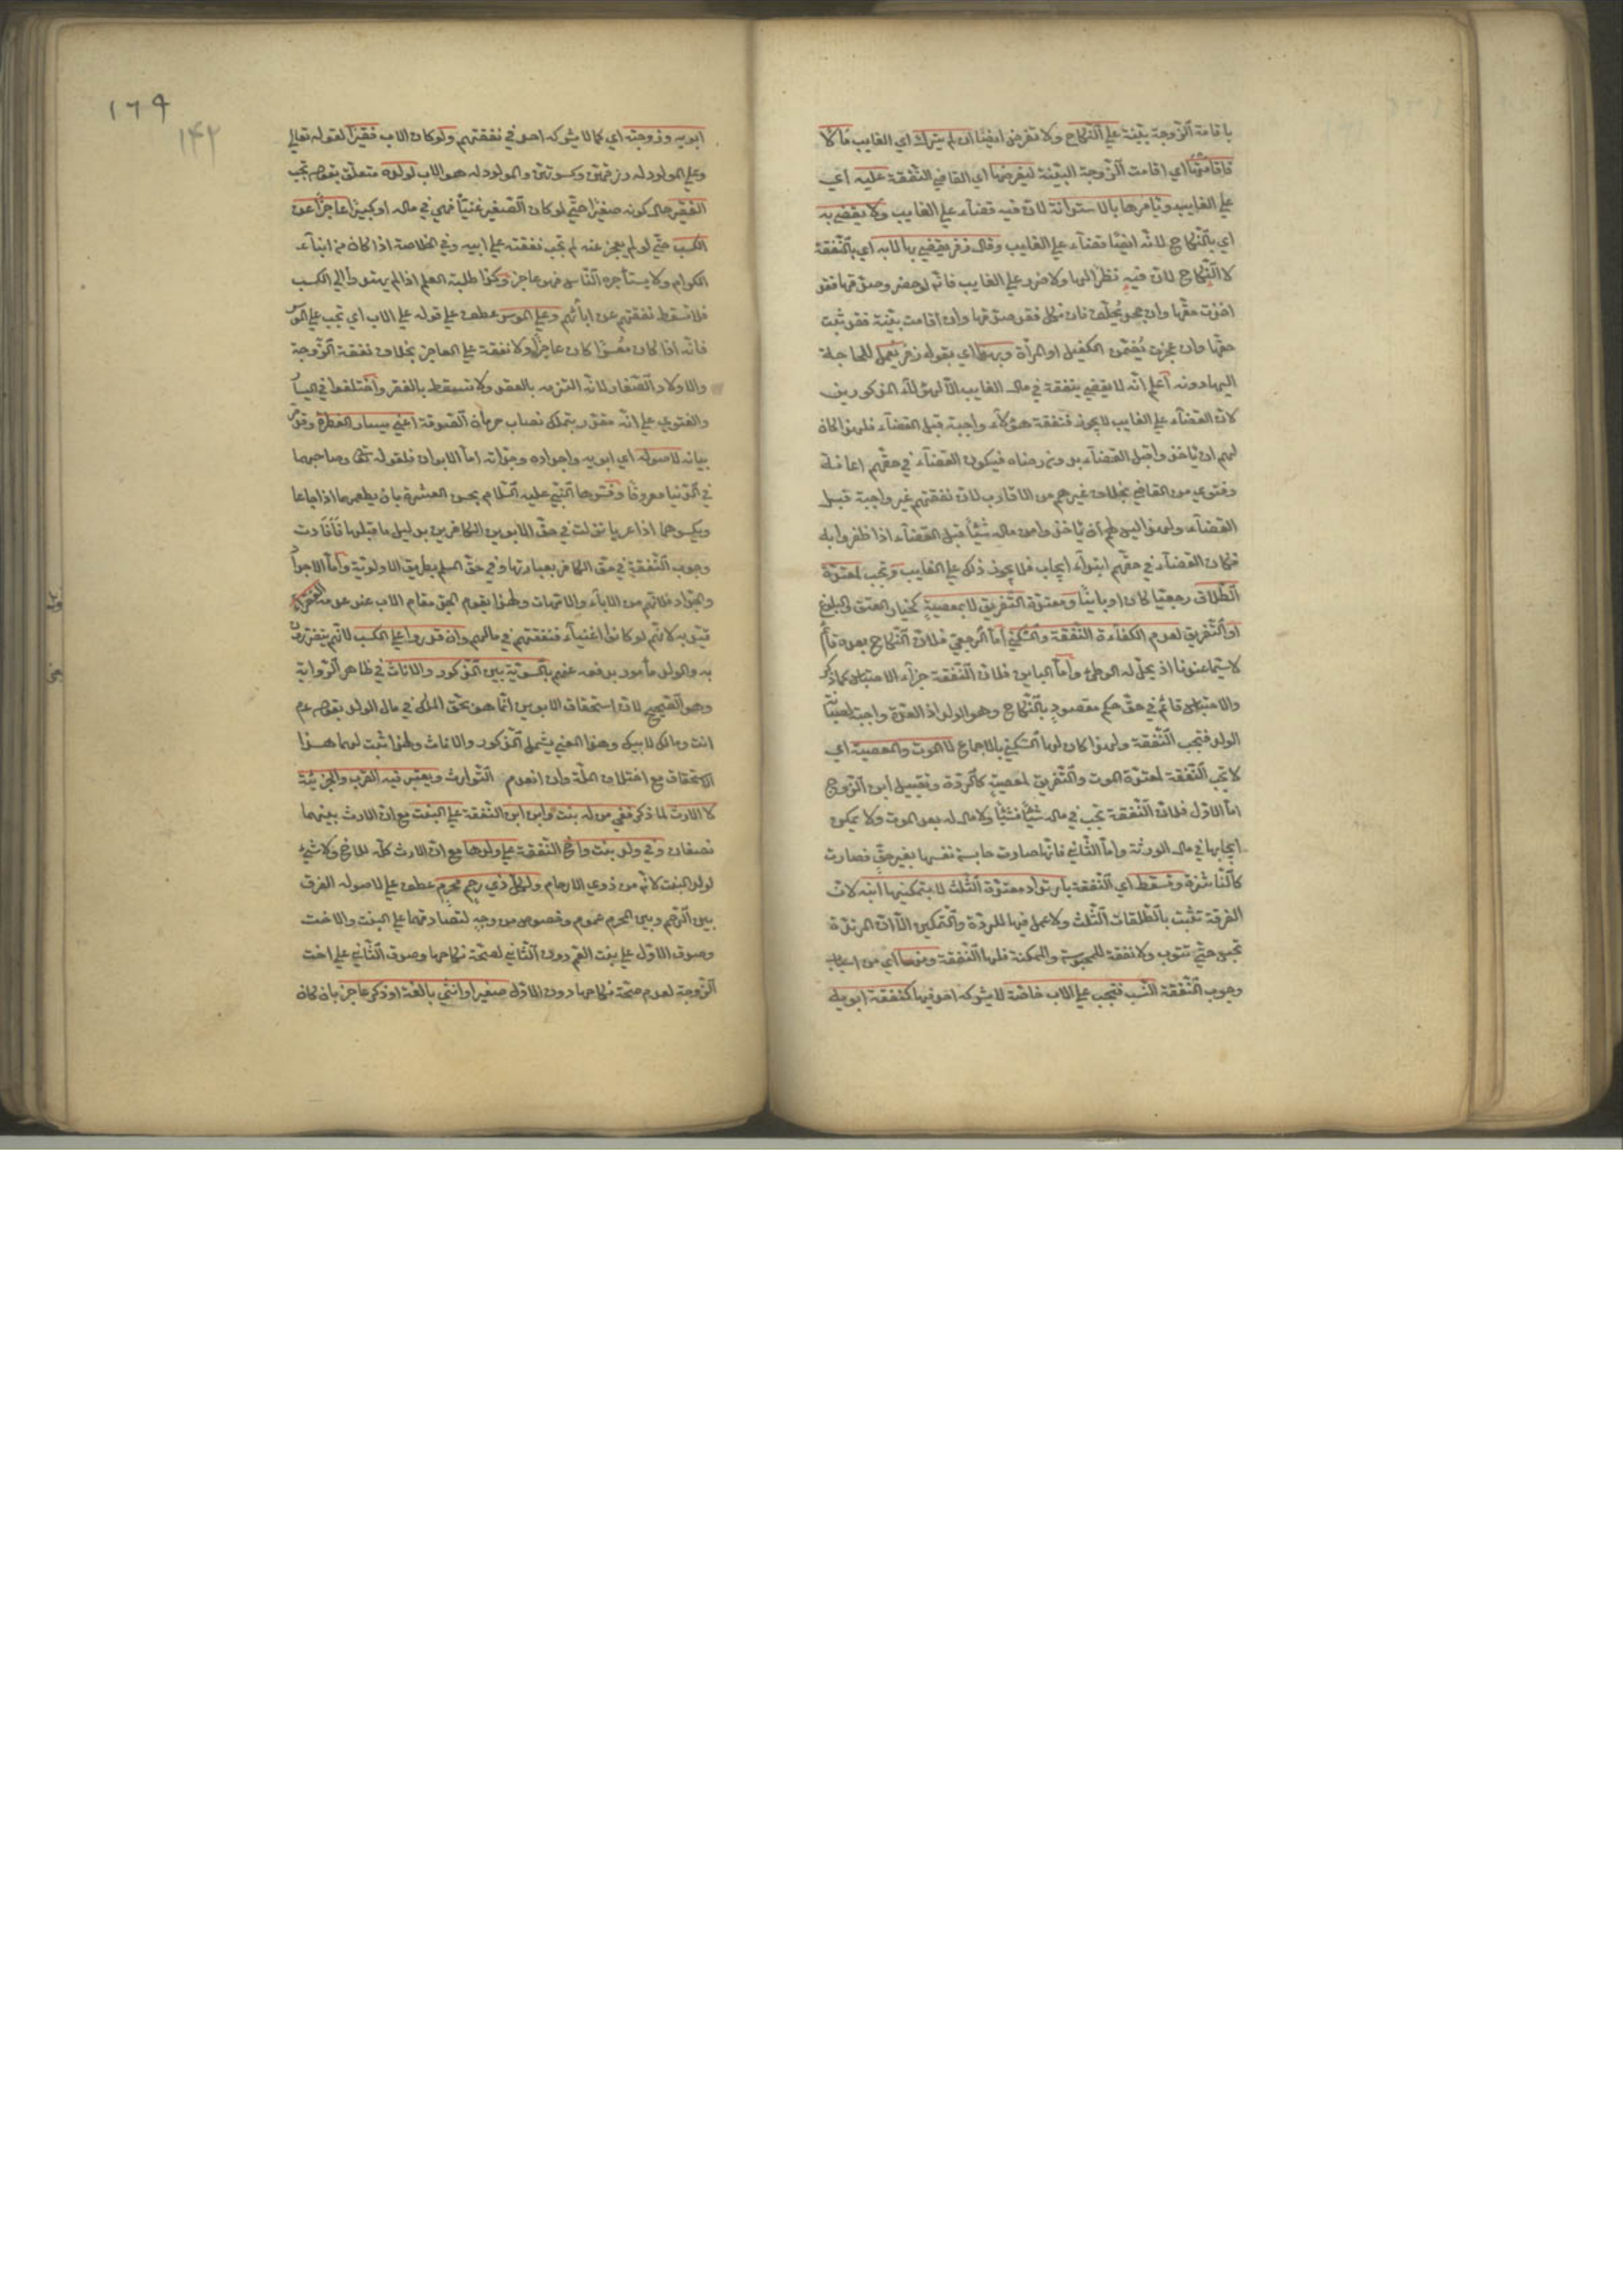 باقامة الزوجة بينة على النكاح ولا تفرض ايضا ان لم يترك اي الغايب مالا
فاقامتها اي اقامت الزوجة البينة ليفرضها اي القاضي النفقة عليه اي
على الغايب ويامرها بالاستدانة لان فيه قضاء على الغايب ولا يقضي به
اي بالنكاح لانه ايضا قضاء على الغايب وقال زفر يقضي بها لا به اي بالنفقة
لا النكاح لان فيه نظرا لها ولا ضرر على الغايب فانه لو حضر وصدقها فقد
اخذت حقها وان جحد يحلف فان نكل فقد صدقها وان اقامت بينة فقد ثبت
حقها وان عجزت يضمن الكفيل او المراة وبهذا اي بقول زفر يعمل للحاجة
اليها دونه اعلم انه لا يقضي بنفقة في مال الغايب الا لهؤلاء المذكورين
لان القضاء على الغايب لا يجوز فنفقة هؤلاء واجبة قبل القضاء فلهذا كان
لهم ان ياخذوا قبل القضاء بدون رضاه فيكون القضاء في حقهم اعانة
وفتوى من القاضي بخلاف غيرهم من الاقارب لان نفقتهم غير واجبة قبل
القضاء ولهذا ليس لهم ان ياخذوا من ماله شيئا قبل القضاء اذا ظفروا به
فكان القضاء في حقهم ابتداء ايجاب فلا يجوز ذلك على الغايب وتجب لمعتدة
الطلاق رجعيا كان او باينا ومعتدة التفريق لا بمعصية كخيار العتق والبلوغ
او التفريق لعدم الكفاءة النفقة والسكنى اما الرجعي فلان النكاح بعده قائم
لا سيما عندنا اذ يحل له الوطئ واما الباين فلان النفقة جزاء الاحتباس كما ذكر
والاحتباس قائم في حق حكم مقصود بالنكاح وهو الولد اذ العدة واجبة لصيانة
الولد فتجب النفقة ولهذا كان لها السكنى بالاجماع لا الموت والمعصية اي
لا تجب النفقة لمعتدة الموت والتفريق لمعصية كالردة وتقبيل ابن الزوج
اما الاول فلان النفقة تجب في ماله شيئا فشيئا ولا مال له بعد الموت ولا يمكن
ايجابها في مال الورثة واما الثاني فانها صارت حابسة نفسها بغير حق فصارت
كالناشزة وتسقط اي النفقة بارتداد معتدة الثلث لا بتمكينها ابنه لان
الفرقة تثبت بالطلقات الثلث ولا عمل فيها للردة والتمكين الا ان المرتدة
تحبس حتى تتوب ولا نفقة للمحبوسة والممكنة فلها النفقة ومنها اي من اسباب
وجوب النفقة النسب فتجب على الاب خاصة لا يشركه احد فيها كنفقة ابويه
١٦٩
١٤٢
ابويه وزوجته اي كما لا يشركه احد في نفقتهم ولو كان الاب فقيرا لقوله تعالى
وعلى المولود له رزقهن وكسوتهن والمولود له هو الاب لولده متعلق بقوله تجب
الفقير حال كونه صغيرا حتى لو كان الصغير غنيا فهي في ماله او كبيرا عاجزا عن
الكسب حتى لو لم يعجز عنه لم تجب نفقته على ابيه وفي الخلاصة اذا كان من ابناء
الكرام ولا يستأجره الناس فهو عاجز وكذا طلبة العلم اذا لم يهتدوا الى الكسب
فلا تسقط نفقتهم عن ابائهم وعلى الموسر عطف على قوله على الاب اي تجب على الموسر
فانه اذا كان معسرا كان عاجزا ولا نفقة على العاجز بخلاف نفقة الزوجة
والاولاد الصغار لانه التزمه بالعقد ولا تسقط بالفقر واختلفوا في اليسار
والفتوى على انه مقدر بتملك نصاب حرمان الصدقة اعني يسار الفطرة وقد مر
بيانه لاصوله اي ابويه واجداده وجداته اما الابوان فلقوله تعالى وصاحبهما
في الدنيا معروفا وفسرها النبي عليه السلام بحسن العشرة بان يطعمهما اذا جاعا
ويكسوهما اذا عريا نزلت في حق الابوين الكافرين بدليل ما قبلها فافادت
وجوب النفقة في حق الكافر بعبارتها وفي حق المسلم بطريق الاولوية واما الاجداد
والجدات فلانهم من الاباء والامهات ولهذا يقوم الجد مقام الاب عند عدمه الفقراء
قيد به لانهم لو كانوا اغنياء فنفقتهم في مالهم وان قدروا على الكسب لانهم يتضررون
به والولد مأمور بدفعه عنهم بالسوية بين الذكور والاناث في ظاهر الرواية
وهو الصحيح لان استحقاق الابوين انما هو بحق الملك في مال الولد بقوله عم
انت ومالك لابيك وهذا المعنى يشمل الذكور والاناث ولهذا ثبت لهما هذا
الاستحقاق مع اختلاف الملة وان انعدم التوارث ويعتبر فيه القرب والجزئية
لا الارث لما ذكر ففي من له بنت وابن ابن النفقة على البنت مع ان الارث بينهما
نصفان وفي ولد بنت واخ النفقة على ولدها مع ان الارث كله للاخ ولا شيء
لولد البنت لانه من ذوي الارحام ولكل ذي رحم محرم عطف على لاصوله الفرق
بين الرحم وبين المحرم عموم وخصوص من وجه لتصادقهما على البنت والاخت
وصدق الاول على بنت العم دون الثاني لصحة نكاحها وصدق الثاني على اخت
الزوجة لعدم صحة نكاحها دون الاول صغير او انثى بالغة او ذكر عاجز بان كان